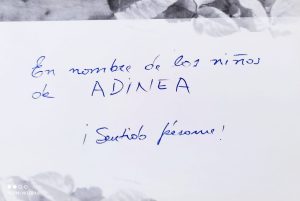 En nombre de los niños
de ADINEA
¡Sentido pésame!